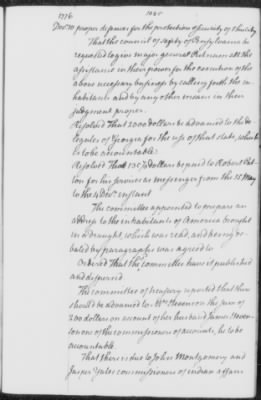 1776
Dec 10 proper defences for the protection & security of this city
That the council of safety of Pensylvania be
requested to give major general Putnam all the
assistance in their power for the execution of the
above necessary business by calling forth the in
habitants and by any other means in their
judgment proper.
Resolved That 2000 dollars be advanced to the de
legates of Georgia for the use of that state, which
is to be accountable:
Resolved That dollars be paid to Robert Pat
ton for his services as messenger from the 15 May
to the 4 Decr instant
The committee appointed to prepare an
address to the inhabitants of America brought
in a draught, which was read, and being de
bated by paragraphs was agreed to
Ordered That the committee have it published
and dispersed
The committee of treasury reported that there
should be advanced to Mrs Stevenson the sum of
300 dollars on account of her husband James Steven
son one of the commissioners of accounts, he to be
accountable.
That there is due to John Montgomery and
Jasper Yates commissioners of indian affairs